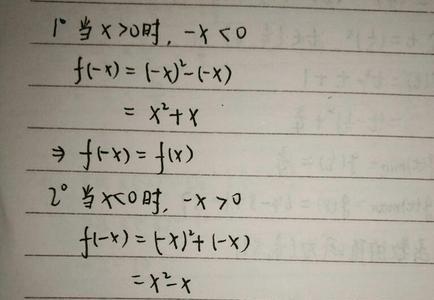 1° 当x>0时, -x<0
f(-x)=(-x)²-(-x)
=x²+x
⇒ f(-x)=f(x)
2° 当x<0时, -x>0
f(-x)=(-x)²+(-x)
=x²-x